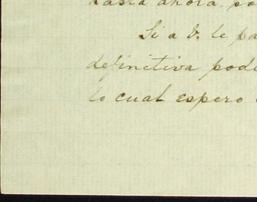 hasta ahora. po
Si a V. le pa
definitiva pode
lo cual espero